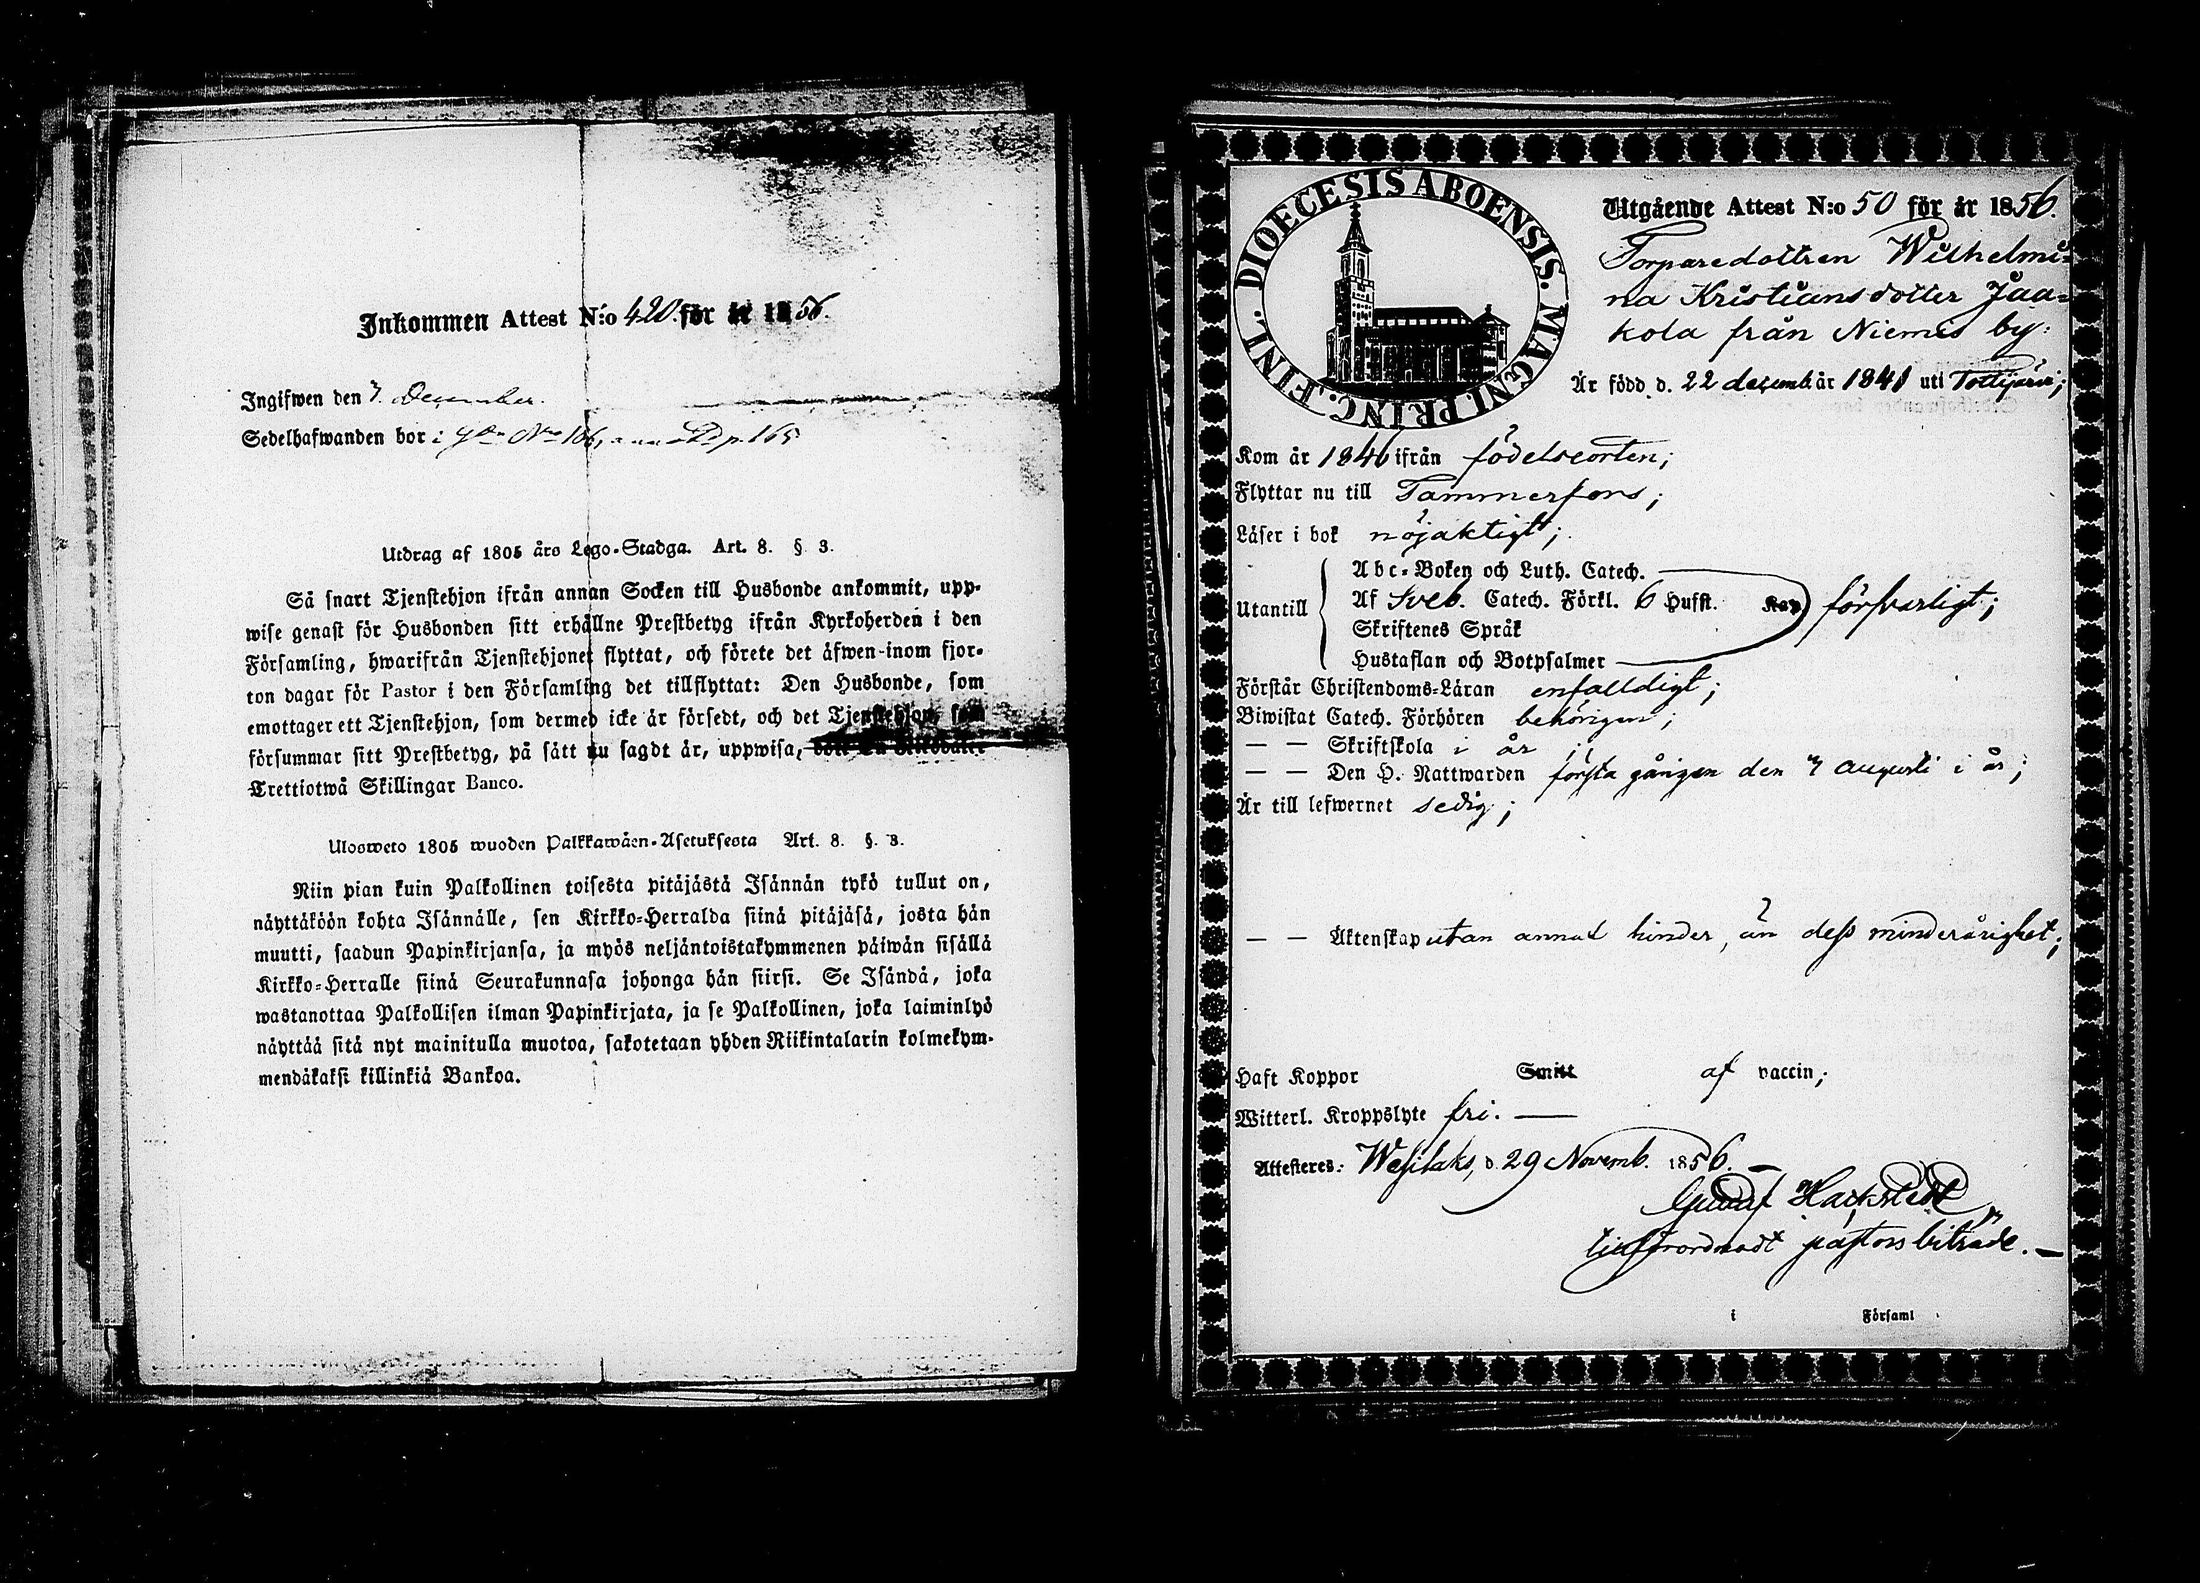 Inkommen Attest N:o 420. för år 1856.
Ingifwen den 7. December.
Sedelhafwanden bor i
Utdrag af 1805 års Lego-Stadga. Art. 8. § 3.
Så snart Tjenstehjon ifrån annan Socken till Husbonde ankommit, upp-
wise genast för Husbonden sitt erhållne Prestbetyg ifrån Kyrkoherden i den
Församling, hwarifrån Tjenstehjonet flyttat, och förete det äfwen-inom fjor-
ton dagar för Pastor i den Församling det tillflyttat: Den Husbonde, som
emottager ett Tjenstehjon, som dermed icke är försedt, och det Tjenstehjon, som
försummar sitt Prestbetyg, på sätt nu sagdt är, uppwisa,
Trettiotwå Skillingar Banco.
Ulosweto 1805 wuoden Palkkawäen-Asetuksesta Art. 8. §. 3.
Niin pian kuin Palkollinen toisesta pitäjästä Isännän tykö tullut on,
näyttäköön kohta Isännälle, sen Kirkko-Herralda siinä pitäjäsä, josta hän
muutti, saadun Papinkirjansa, ja myös neljäntoistakymmenen päiwän sisällä
Kirkko-Herralle siinä Seurakunnasa johonga hän siirsi. Se Isändä, joka
wastanottaa Palkollisen ilman Papinkirjata, ja se Palkollinen, joka laiminlyö
näyttää sitä nyt mainitulla muotoa, sakotetaan yhden Riikintalarin kolmekym-
mendäkaksi killinkiä Bankoa.
DIOECESIS ABOENSIS. MAGNI. PRINC. FINL.
Utgående Attest N:o 50 för år 1856.
Torparedottren Wilhelmi-
na Kristiansdotter Jaa-
kola från Niemis by:
Är född d. 22 decemb. år 1841 uti Tottijärvi;
Kom år 1846 ifrån födelseorten;
Flyttar nu till Tammerfors;
Läser i bok nöjaktigt;
Utantill
Abc-Boken och Luth. Catech.
Af Sveb. Catech. Förkl. 6 Hufst. Kap försvarligt;
Skriftenes Språk
Hustaflan och Botpsalmer
Förstår Christendoms-Läran enfalldigt;
Biwistat Catech. Förhören behörigen;
— — Skriftskola i år;
— — Den H. Nattwarden första gången den 7 augusti i år;
Är till lefwernet sedig;
— — Äktenskap utan annat hinder, än dess minderårighet;
Haft Koppor Smitt af vaccin;
Witterl. Kroppslyte fri. —
Attesteres: Wesilaks, d. 29 Novemb. 1856. —
Gustaf Hackstedt
tjensförordnadt pastorsbiträde. —
i Församl